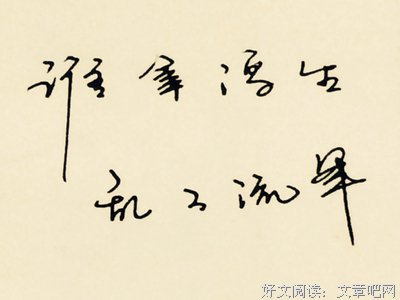 谁拿浮生
乱了流年
好文阅读：文章吧网